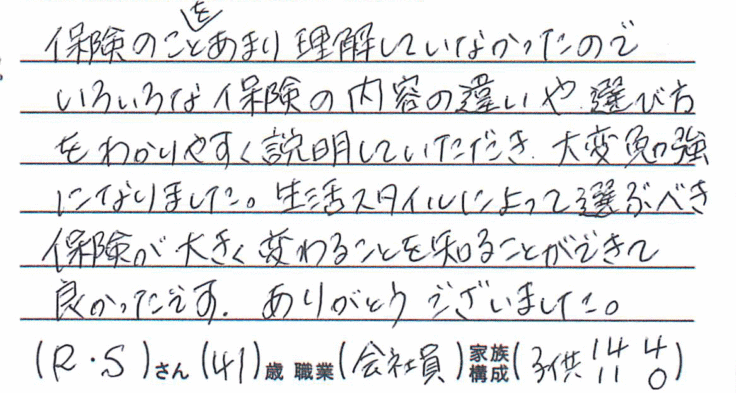 保険のことをあまり理解していなかったので
いろいろな保険の内容の違いや選び方
をわかりやすく説明していただき、大変勉強
になりました。生活スタイルによって選ぶべき
保険が大きく変わることを知ることができて
良かったです。ありがとうございました。
(R・S)さん(41)歳 職業(会社員)家族構成(子供 14 4 11 0)